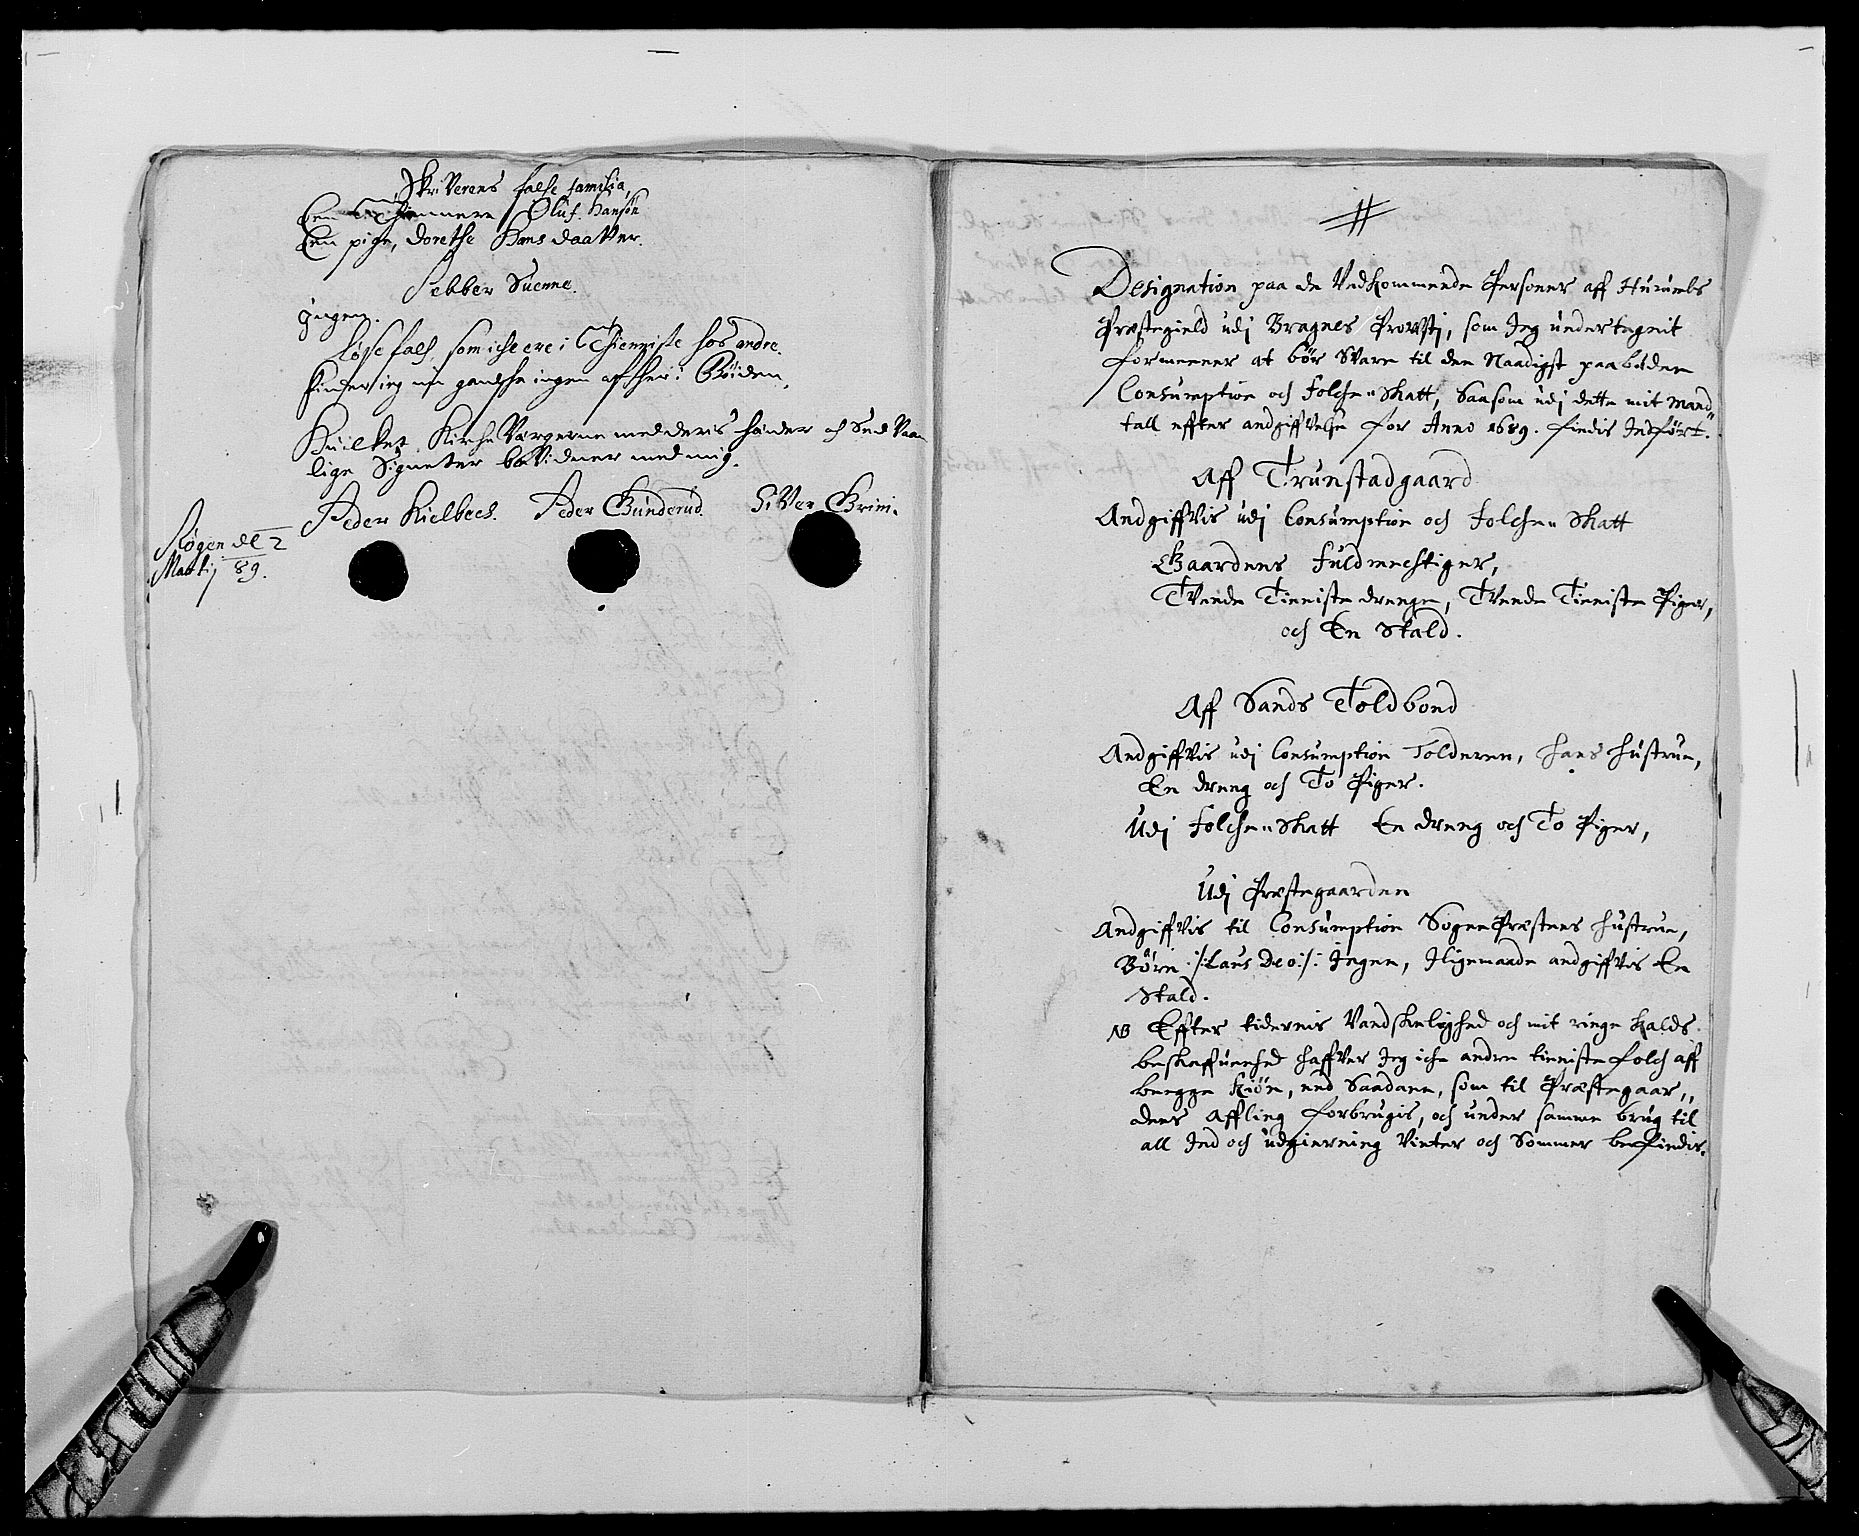 Skriverens halfe familia,
Een Thienere Oluf Hansøn
Een pige, dorethe Hans daatter.
Pebber Suenne.
Jngen.
Løse folch, som iche ere i Thienniste hos andre.
finder ieg nu gandshe ingen aff her i Bøiden,
Huilket Kirche Vergerne med deris hender och Sed Vaan
lige Signeter beVidner med mig.
Peder Kielbech. Peder Gunderud. SiVer Grini.
Røgen dE 2
Martij 89.
Designation paa de Vedkommende Persones aff Hurumbs
Præstegield udj Bragnes Provstj, som Jeg undertegnit
formeener at bør Svare til den Naadigst paabodne
Consumption och Folche-Skatt, Saasom udj dette mit Mand
tall effter andgiffvelse for Anno 1689. findis Jndført.
Aff Trunstadgaard
Andgiffvis udj Consumption och Folche-Skatt
Gaardens Fuldmechtiger,
Tvende Tieniste drenge, Tvende Tieniste Piger,
och En Stald.
Aff Sands Toldbond
Andgiffvis udj Consumption Tolderen, hans hustrue,
En dreng och To Piger.
Udj Folche-Skatt En dreng och To Piger,
Udj Præstegaarden
Andgiffvis til Consumption SognePræstens hustrue,
Børn /: Laus Deo :/ Jngen, Jligemaade andgiffvis En
Stald.
NB Effter tidernis Vandskelighed och mit ringe Kalds
beskaffuenhed haffver Jeg iche andre tieniste folch aff
begge Kiøn, end Saadane, som til Præstegaar,,
dens Affling forbrugis, och under samme brug til
all Jnd och udgierning Vinter och Sommer befindis.